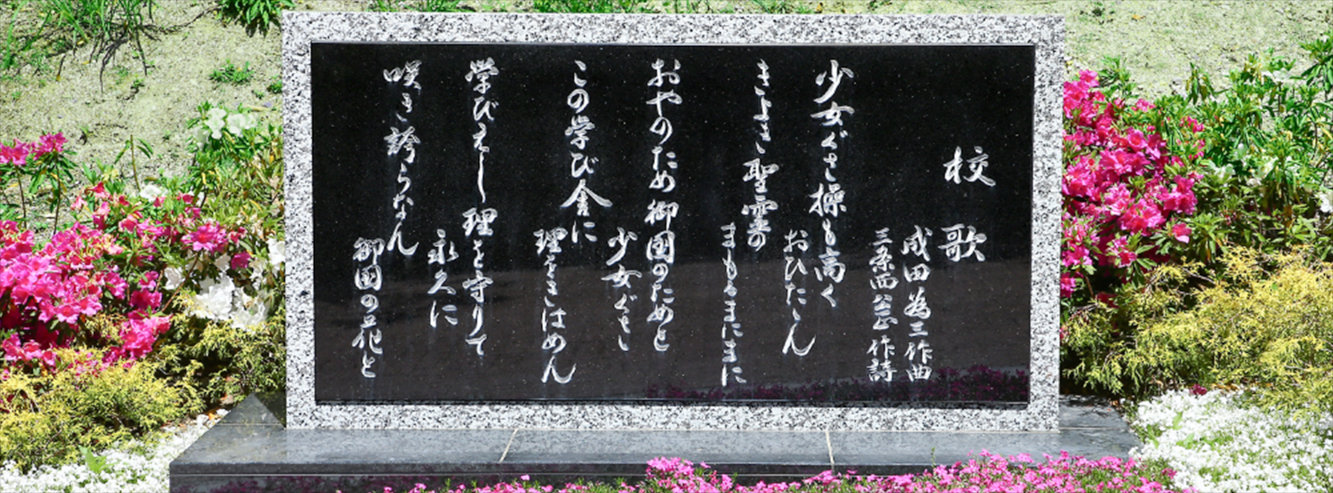 校歌
成田為三作曲
三条西公正作詩
少女ぐさ操も高く
おひたゝん
きよき聖霊の
まもるまにまに
おやのため御国のためと
少女ぐさ
この学び舎に
理をきはめん
学びえし理を守りて
永久に
咲き誇らなん
御国の花と